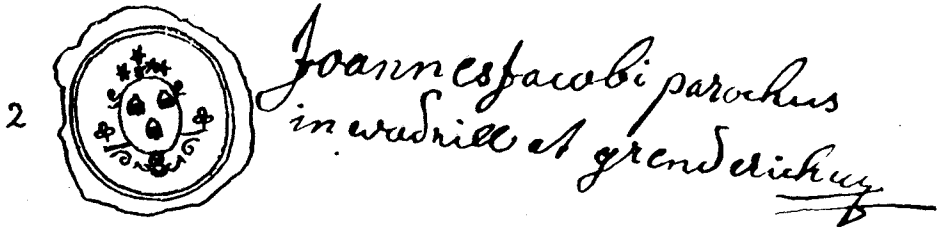 2
Joannes Jacobi parochus
in wadrill et grenderich